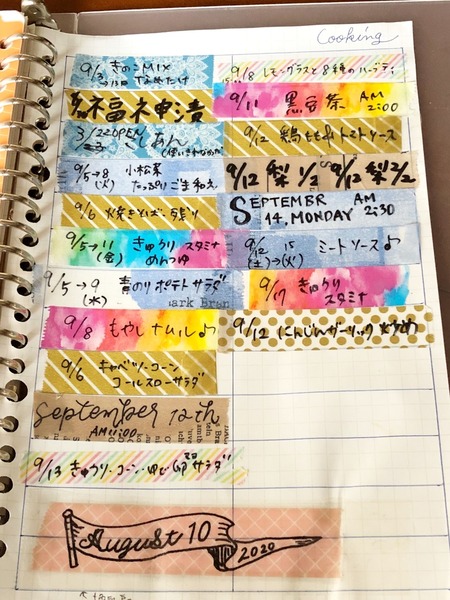 Cooking
9/3 きのこMIX
なめたけ
9/ 福神漬
3/22 OPEN
23 こしあん
(使いきれなかった
9/5→8 小松菜
(火) たっぷりごま和え
9/6 焼きそば 残り
9/5→11 きゅうり スタミナ
(金) めんつゆ
9/5→9 青のりポテトサラダ
(水)
ark Bran
9/8 もやしナムル♪
9/6 キャベツ・コーン
コールスローサラダ
September 12th
AM
9/13 きゅうり・コーン・ゆで卵サラダ
August 10
2020
9/8 レモングラスと8種のハーブティ
9/11 黒豆茶 AM
2:00
9/12 鶏もも トマトソース
9/12 梨1/2 9/12 梨2/2
SEPTEMBR AM
14, MONDAY 2:30
9/12 15 ミートソース♪
(土)→(火)
9/17 きゅうり
スタミナ
9/12 にんじんガーリック